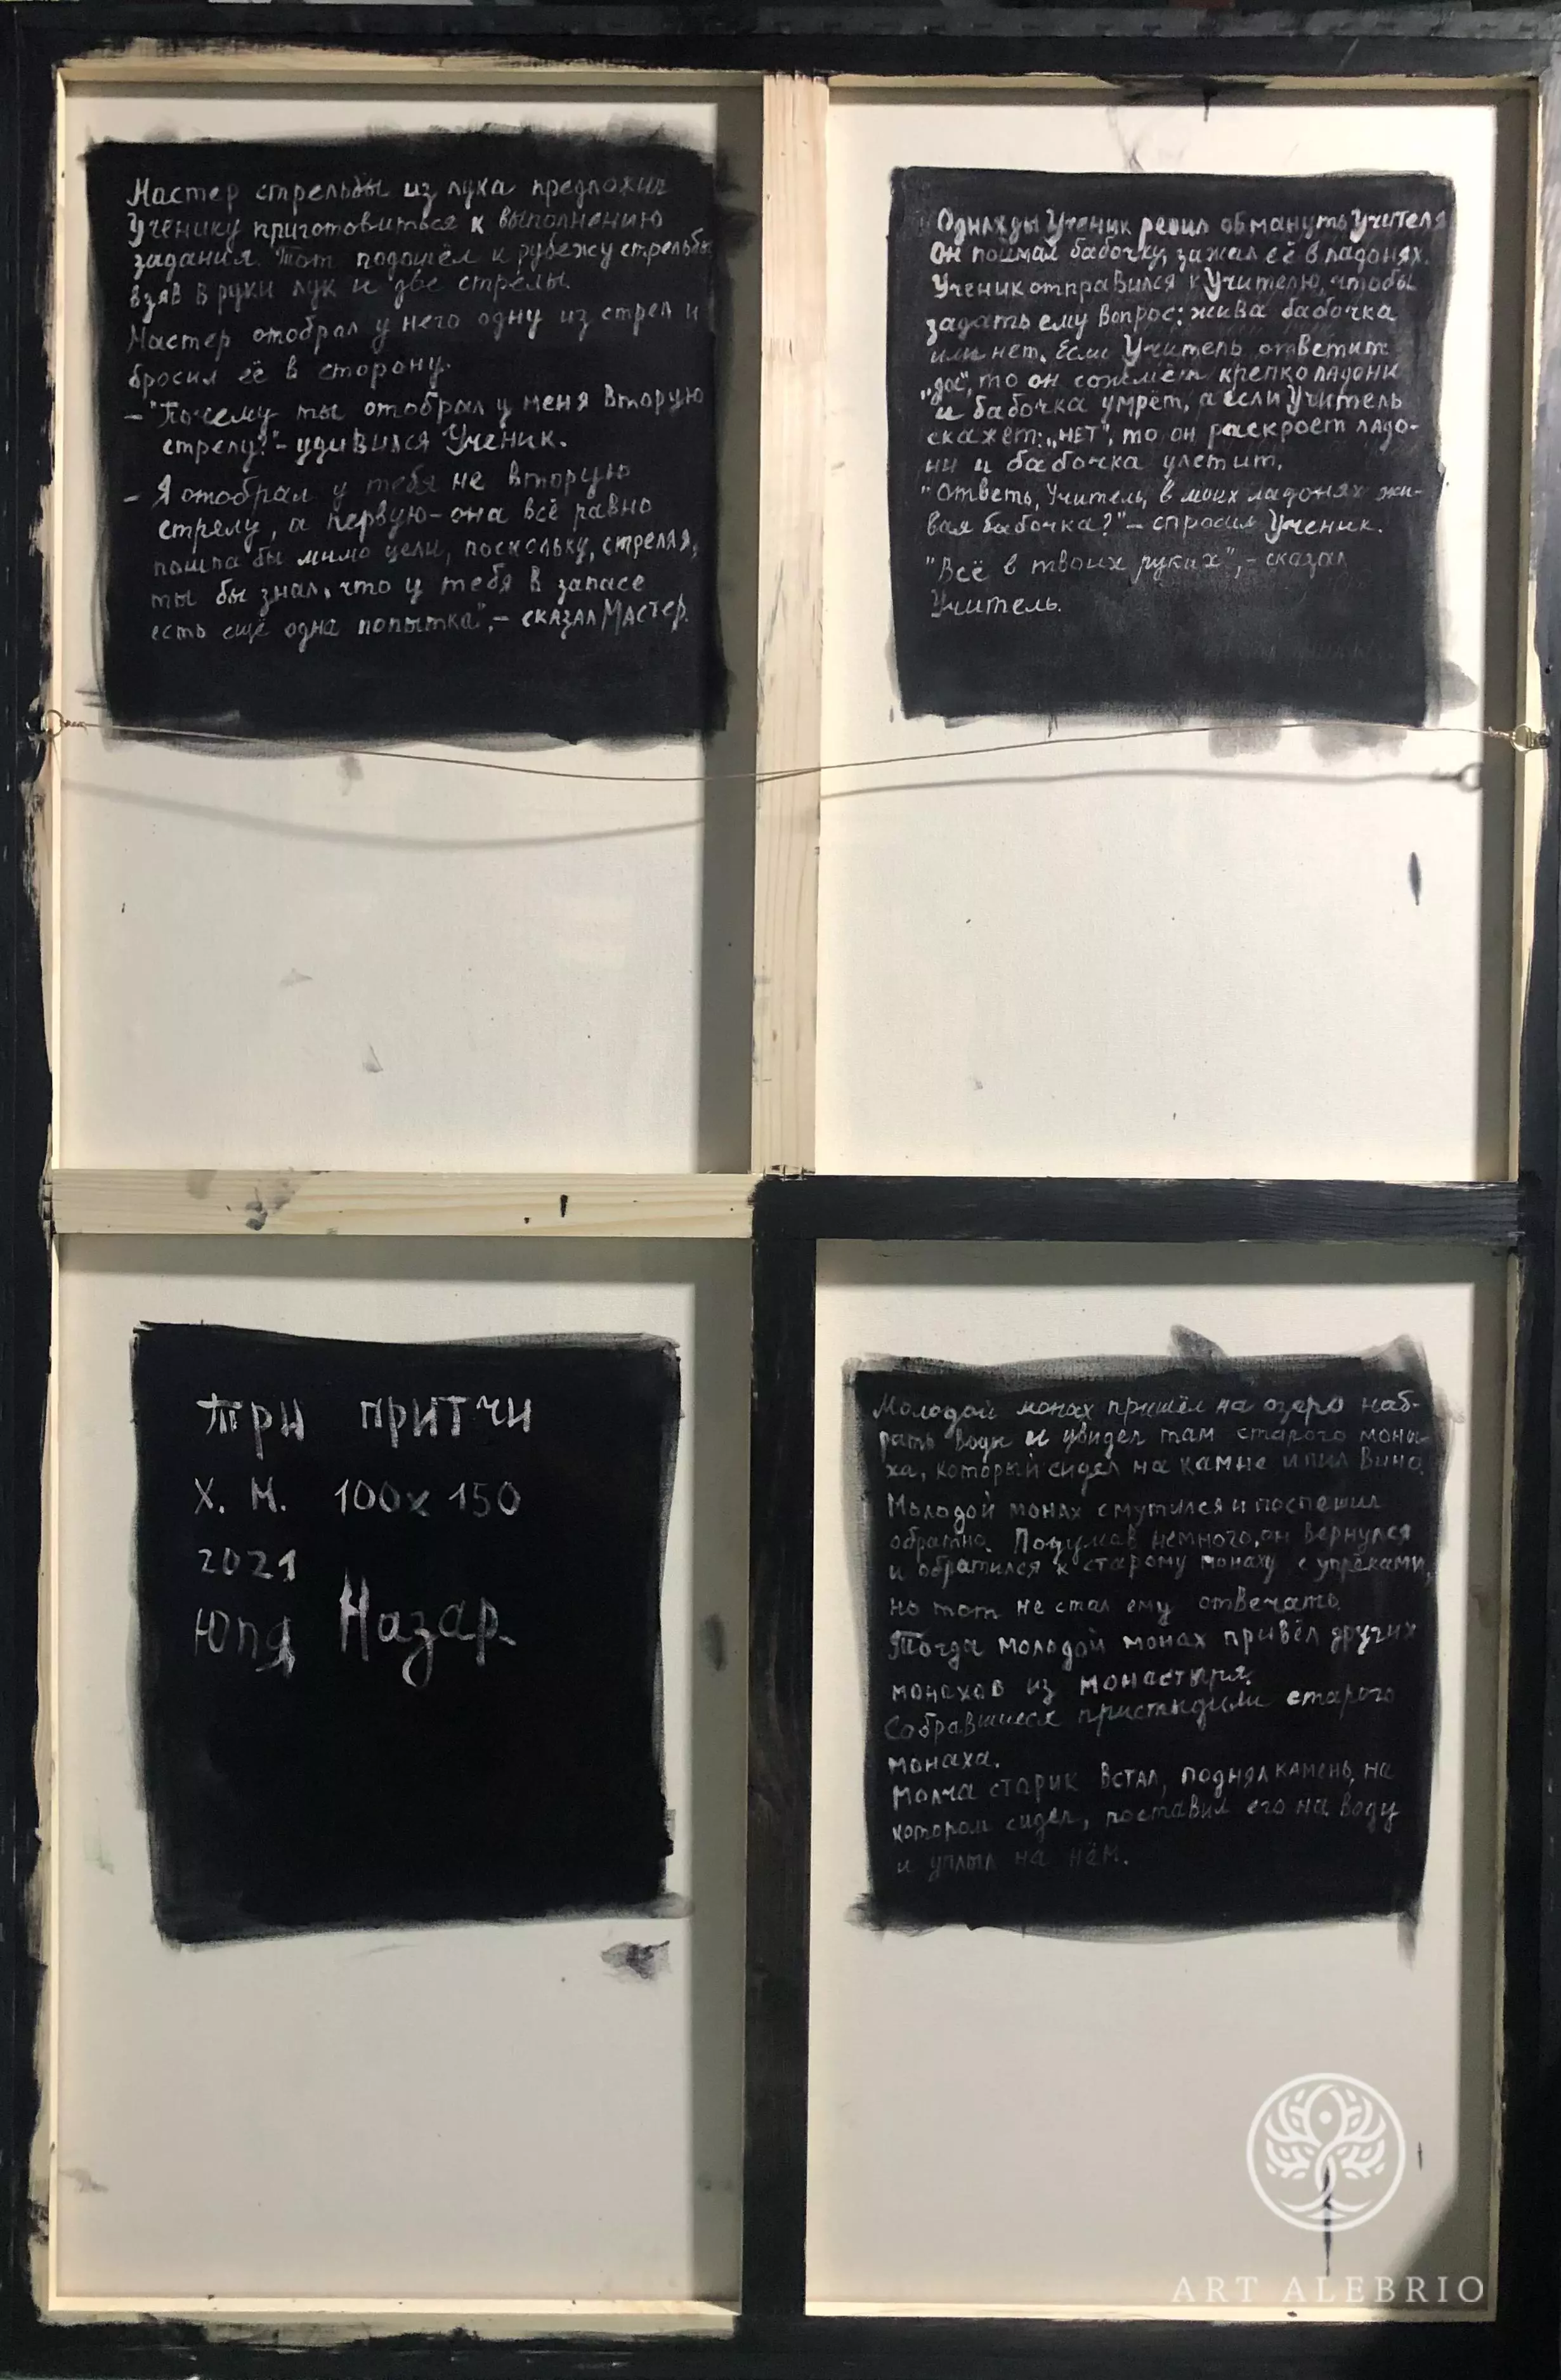 Мастер стрельбы из лука предложил
Ученику приготовиться к выполнению
задания. Тот подошёл к рубежу стрельбы
взяв в руки лук и две стрелы.
Мастер отобрал у него одну из стрел и
бросил её в сторону.
– "Почему ты отобрал у меня вторую
стрелу?" – удивился Ученик.
– Я отобрал у тебя не вторую
стрелу, а первую – она всё равно
пошла бы мимо цели, поскольку, стреляя,
ты бы знал, что у тебя в запасе
есть ещё одна попытка", – сказал Мастер.
Однажды Ученик решил обмануть Учителя
Он поймал бабочку, зажал её в ладонях.
Ученик отправился к Учителю, чтобы
задать ему вопрос: жива бабочка
или нет. Если Учитель ответит
"да", то он сожмёт крепко ладони
и бабочка умрёт, а если Учитель
скажет: „нет", то он раскроет ладо-
ни и бабочка улетит.
"Ответь, Учитель, в моих ладонях жи-
вая бабочка?" – спросил Ученик.
"Всё в твоих руках", – сказал
Учитель.
Три притчи
Х. М. 100х150
2021
Юля Назар
Молодой монах пришёл на озеро наб-
рать воды и увидел там старого мона-
ха, который сидел на камне и пил вино.
Молодой монах смутился и поспешил
обратно. Подумав немного, он вернулся
и обратился к старому монаху с упрёками,
но тот не стал ему отвечать.
Тогда молодой монах привёл других
монахов из монастыря.
Собравшиеся пристыдили старого
монаха.
Молча старик встал, поднял камень, на
котором сидел, поставил его на воду
и уплыл на нём.
ART ALEBRIO